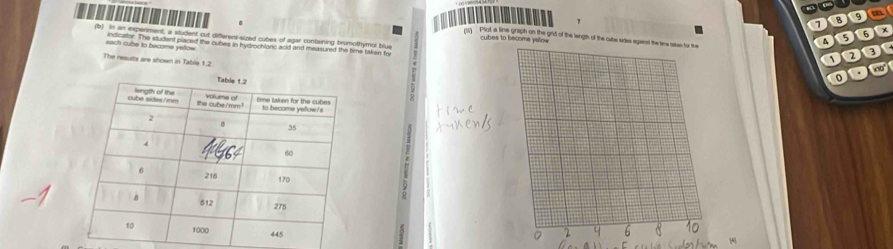 8
(b) In an experiment, a student cut different-sized cubes of agar containing bromothymol blue
indicator. The student placed the cubes in hydrochloric acid and measured the time taken for
each cube to become yellow.
The results are shown in Table 1.2.
Table 1.2
length of the cube sides/mm | volume of the cube/mm³ | time taken for the cubes to become yellow/s
2 8 35
4 64 60
6 216 170
8 512 275
10 1000 445
-1
DO NOT WRITE IN THIS MARGIN
DO NOT WRITE IN THIS MARGIN
7
(ii) Plot a line graph on the grid of the length of the cube sides against the time taken for the
cubes to become yellow.
time
taken/s
0 2 4 6 8 10
[4]
7 8 9 DEL
4 5 6 ×
1 2 3
0 •